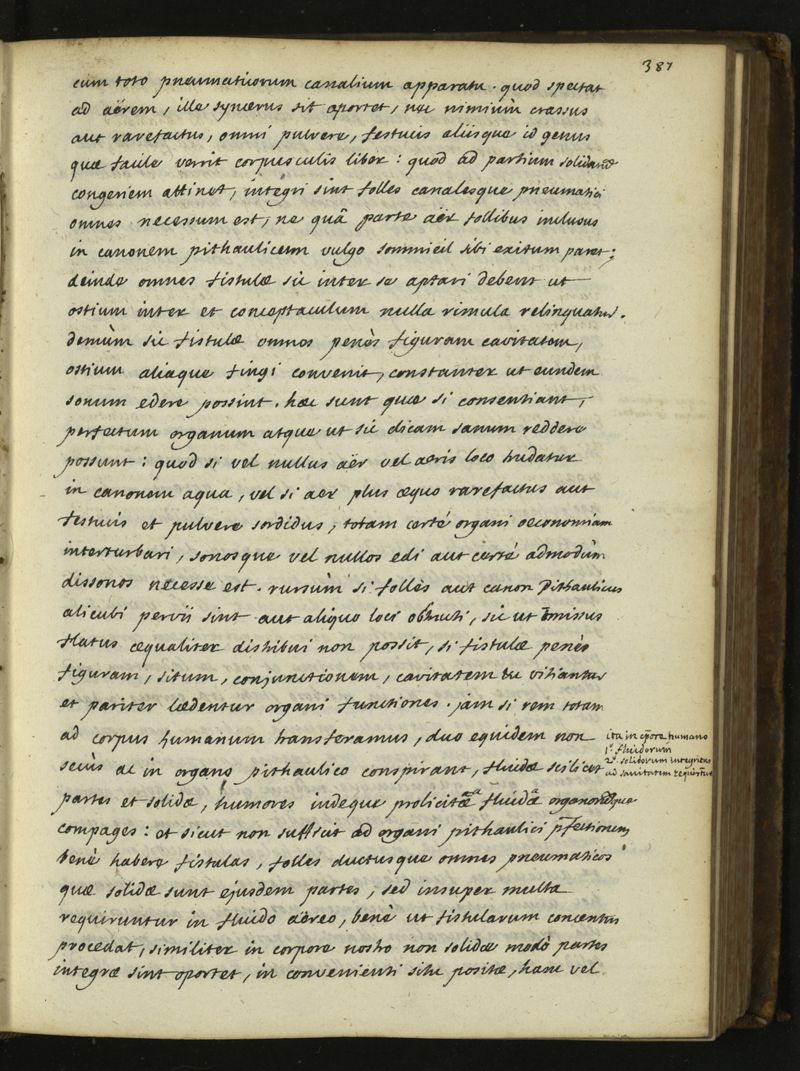 387
cum toto pneumaticorum canalium apparatu. quod spectat
ad aërem, ille syncerus sit oportet, nec nimiùm crassus
aut rarefactus, omni pulvere, festucis aliisque id genus
quæ facile verrit corpusculis liber: quod ad partium solidarum
congeriem attinet, integri sint folles canalesque pneumatici
omnes necessum est, ne quâ parte aër follibus inclusus
in canonem pithaulicum vulgo sommieil sibi exitum paret;
deinde omnes fistulæ sic inter se aptari debent ut
ostium inter et conceptaculum nulla rimula relinquatur.
demùm sic fistulæ omnes penès figuram cavitatem,
ostium aliaque fingi convenit, constanter ut eundem
sonum edere possint. hæc sunt quæ si consentiant,
perfectum organum atque ut sic dicam sanum reddere
possunt: quod si vel nullus aër vel aeris loco trudatur
in canonem aqua, vel si aer plus æquo rarefactus aut
festucis et pulvere sordidus, totam certé organi oeconomiam
interturbari, sonosque vel nullos edi aut certé admodùm
dissonos necesse est. rursùm si follès aut canon Pithaulicus
alicubi pervii sint aut aliquo loci obstructi, sic ut immissus
flatus æqualiter distribui non possit, si fistulæ penès
figuram, situm, conjunctionem, cavitatem vitiantur
et pariter lædentur organi functiones. jam si rem totam
ad corpus humanum transferamus, duo equidem non
secùs ac in organo pithaulico conspirant, fluidæ scilicet
partes et solidæ, humores indeque fluidâ organorumque
compages: et sicut non sufficit ad organi pithaulici pfectionem
benè habere fistulas, folles ductusque omnes pneumaticos
quæ solidæ sunt ejusdem partes, sed insuper multa
requiruntur in fluido aëreo, benè ut fistularum concentus
procedat, similiter in corpore nostro non solidæ modò partes
integræ sint oportet, in convenienti situ positæ, hanc vel
ita in cpore humano
1º. fluidorum
2º. solidorum integritas
ad sanitatem requiritur